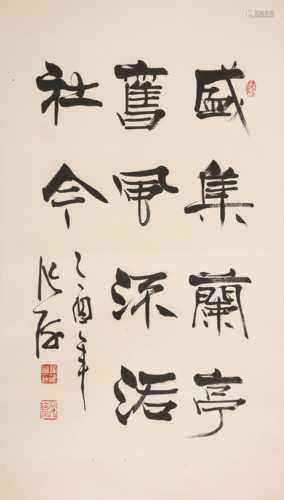 盛集蘭亭
舊風流洛
社今
乙酉年
張海